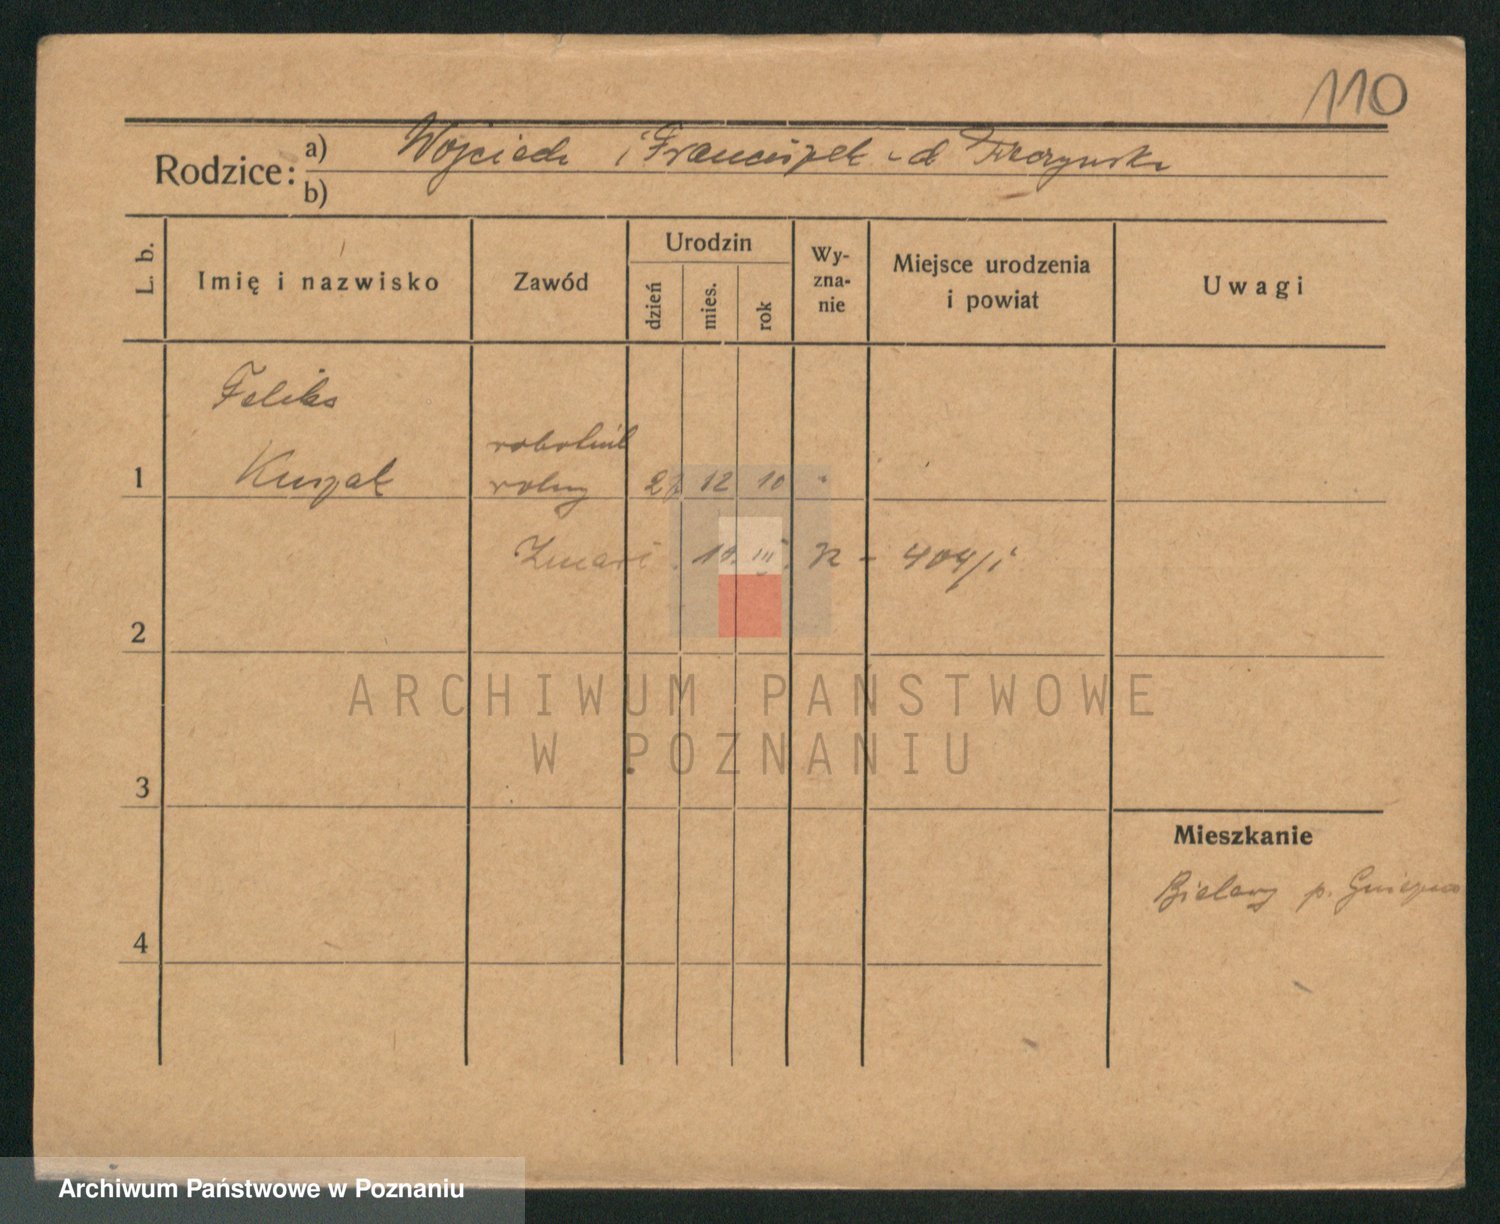 110
Rodzice: a) Wojciech i Franciszek
b)
L. b.
Imię i nazwisko
Zawód
Urodzin
dzień
mies.
rok
Wy-
zna-
nie
Miejsce urodzenia
i powiat
Uwagi
Feliks
robotnik
1 Kuszak rolny 27 12 10
Zmarł 10. III. 404/i
2
ARCHIWUM PAŃSTWOWE
W POZNANIU
3
Mieszkanie
Bielawy p. Gniezno
4
Archiwum Państwowe w Poznaniu